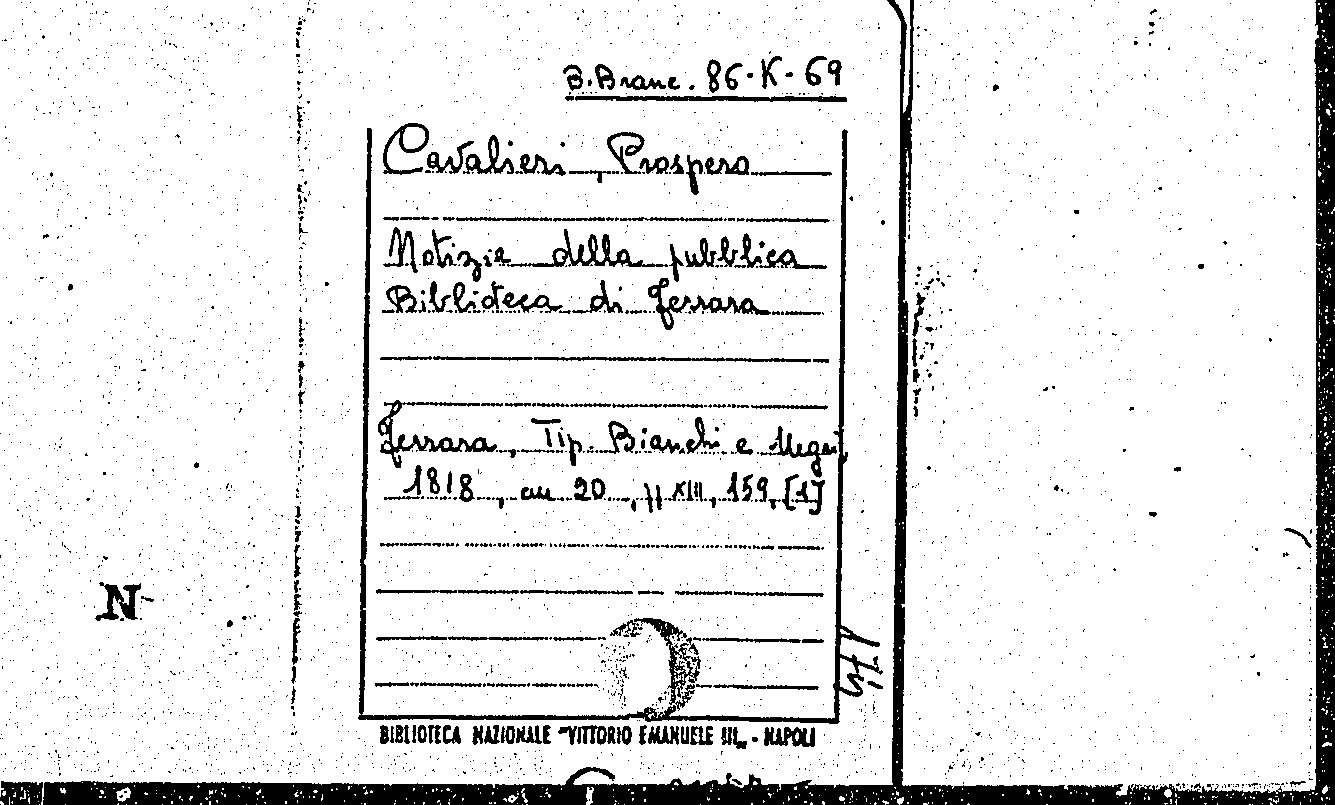 B. Branc. 86-K-69
Cavalieri, Prospero
Notizie della pubblica
Biblioteca di Ferrara
Ferrara, Tip. Bianchi e Negri,
1818, cm 20, pp XIII, 159, [1]
N
BIBLIOTECA NAZIONALE "VITTORIO EMANUELE III„ - NAPOLI